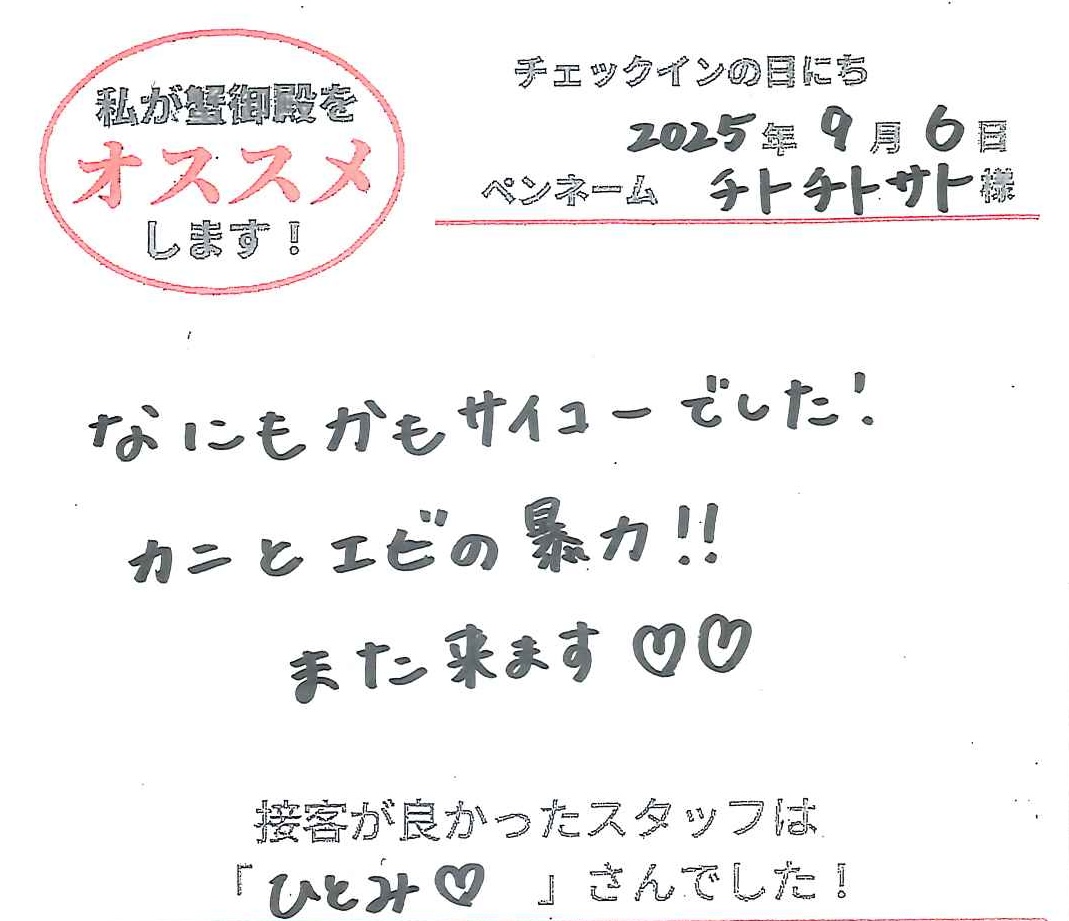 私が蟹御殿を
オススメ
します！
チェックインの日にち
2025年9月6日
ペンネーム チトチトサト様
なにもかもサイコーでした!
カニとエビの暴力!!
また来ます♡♡
接客が良かったスタッフは
「ひとみ♡」さんでした！